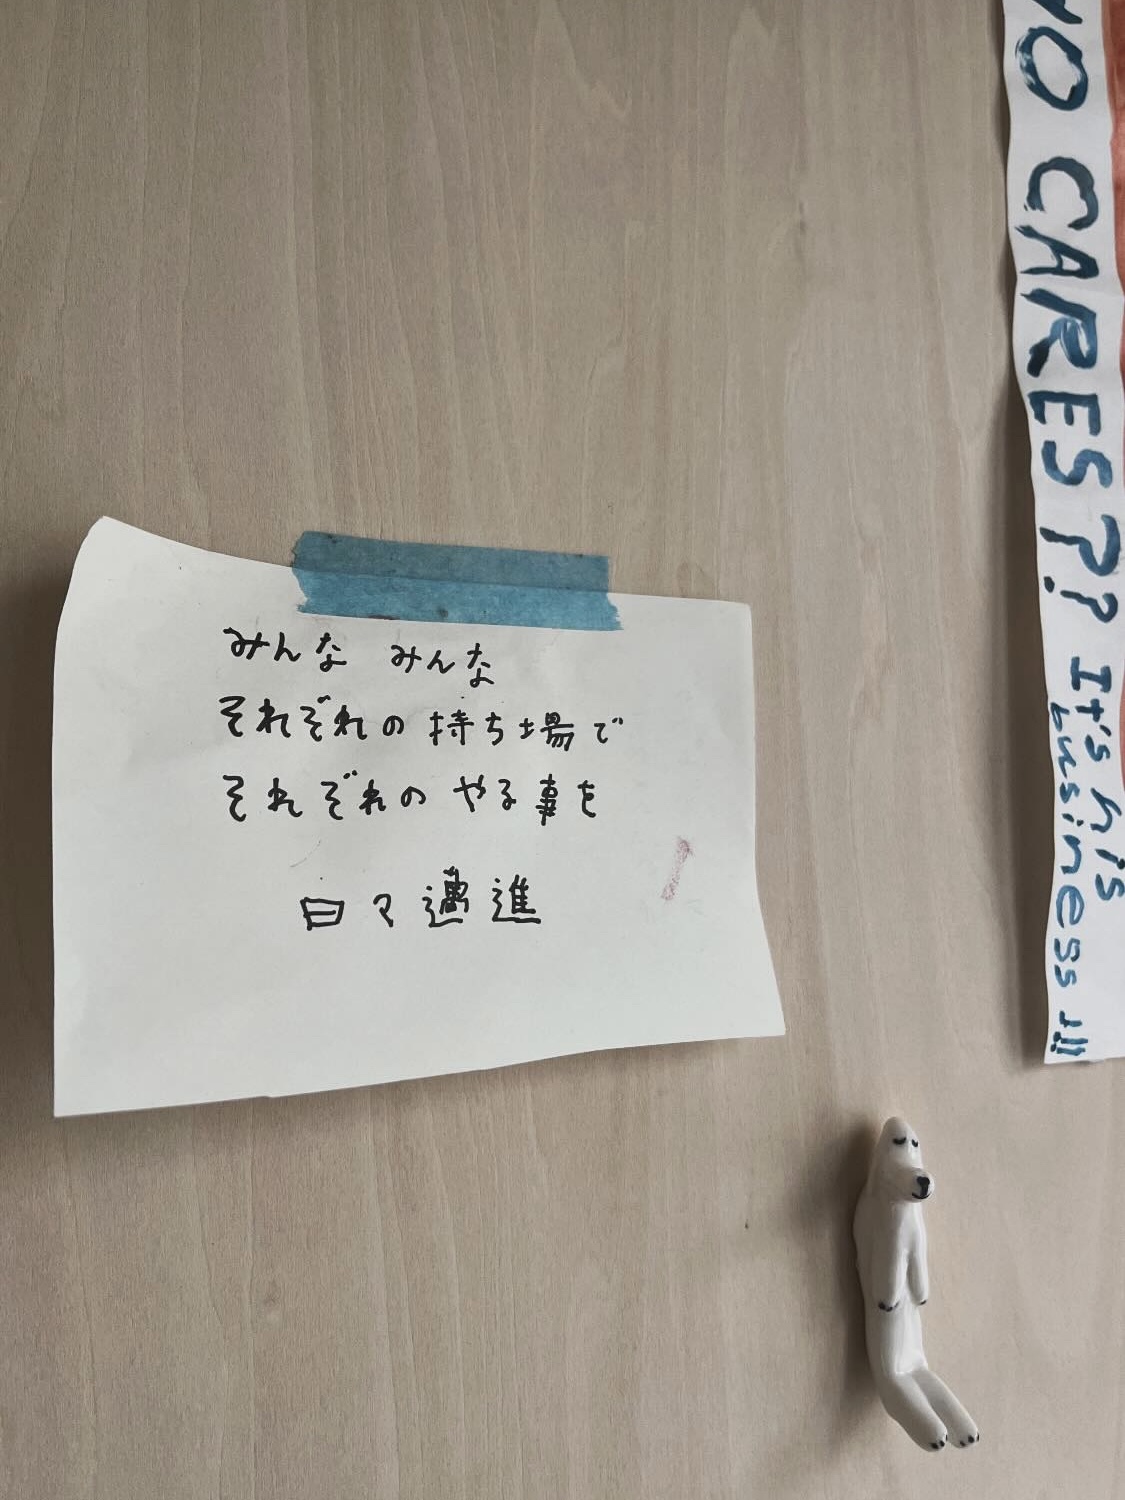 みんな みんな
それぞれの持ち場で
それぞれのやる事を
日々邁進
CARES?? It's his
business!!!